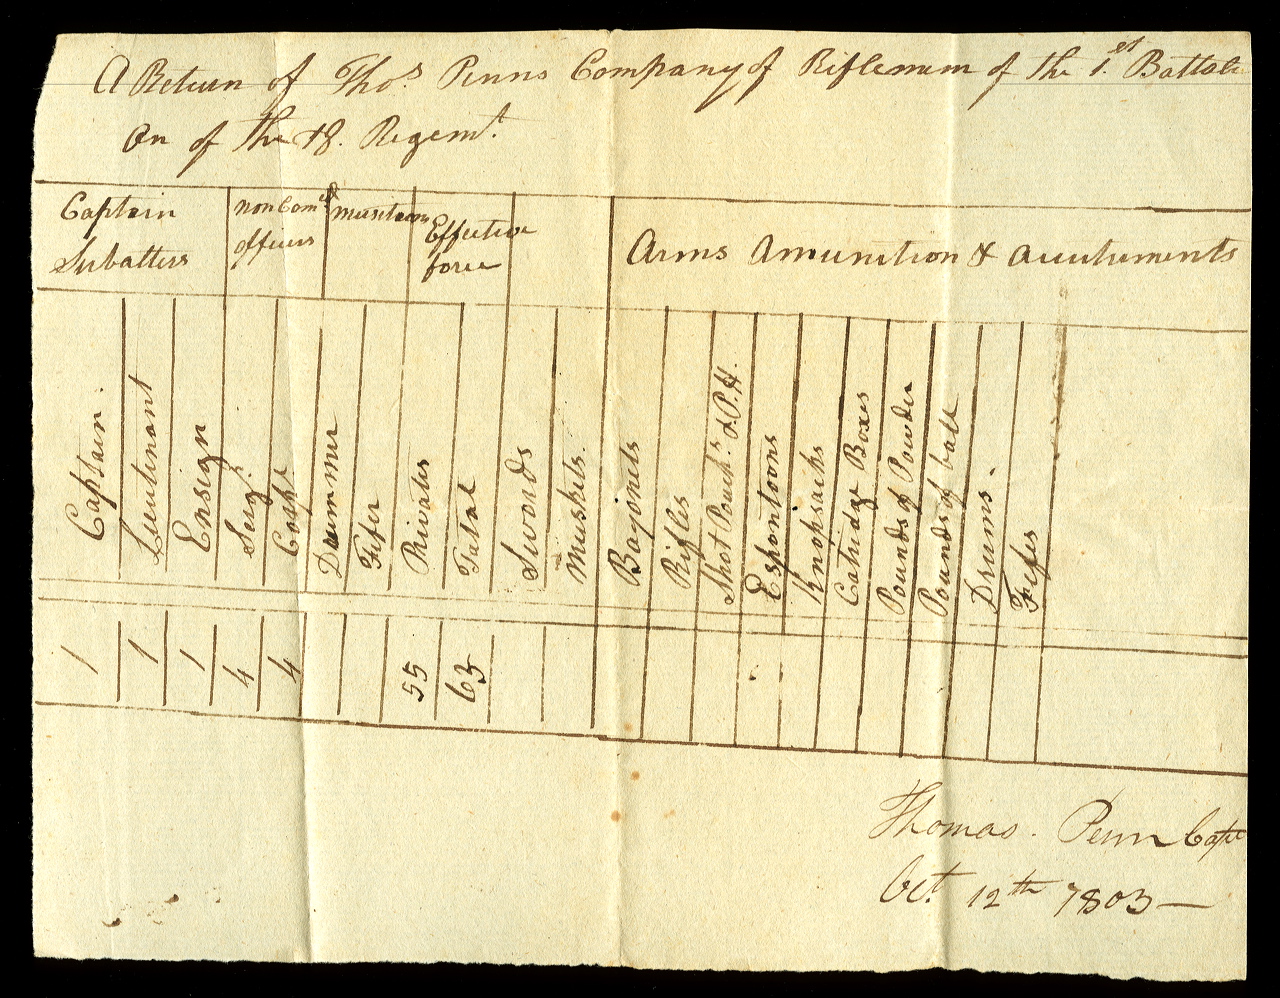 A Return of Thos. Penns Company of Riflemen of the 1.st Battali
on of the 18. Regemt.
Captain
Subatters
non Comd
officers
& musicians
Effective
force
Arms Amunition & Accutrements
Captain.
Lieutenant
Ensign
Serg.
Corpl
Drummer
Fifer
Privates
Total
Swords
Muskets.
Bayonets
Rifles
Shot Pouchs. & P.H.
Espontoons
Knapsacks
Catridge Boxes
Pounds of Powder
Pounds of ball
Drums.
Fifes
1 1 1 4 4 55 63
Thomas. Penn Capt
Oct. 12th 1803 —